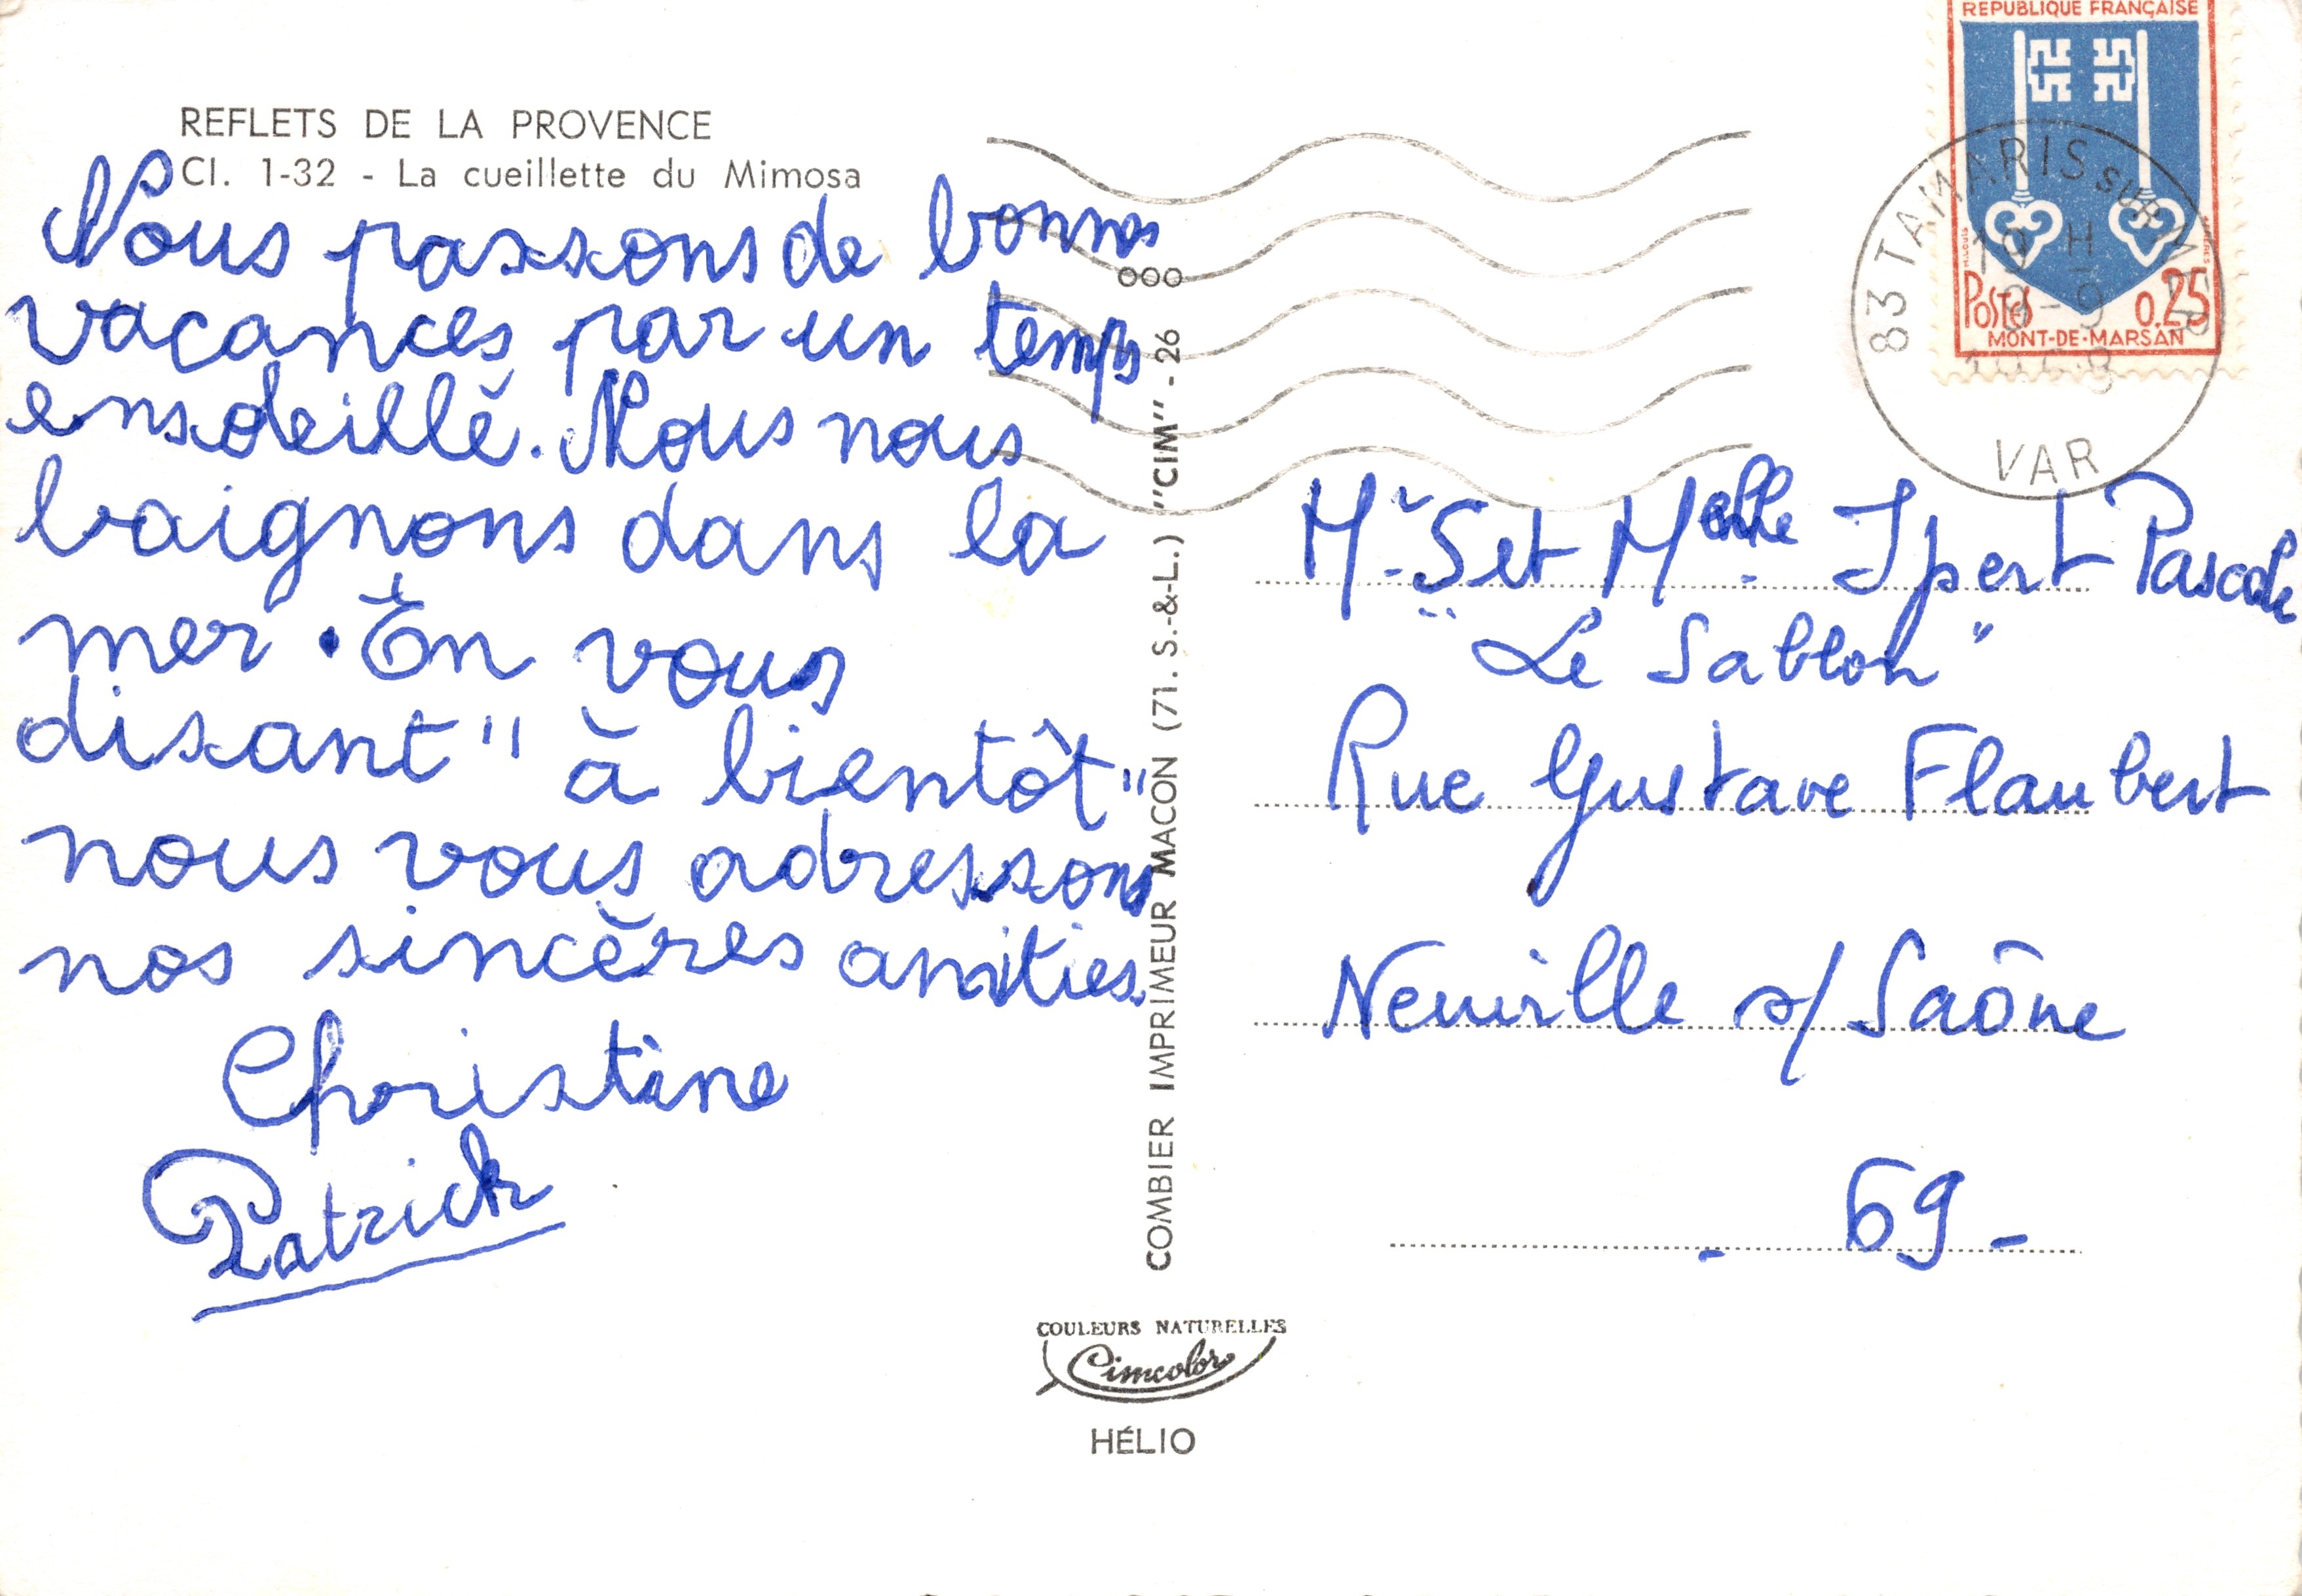 REFLETS DE LA PROVENCE
Cl. 1-32 - La cueillette du Mimosa
Nous passons de bonnes
vacances par un temps
ensoleillé. Nous nous
baignons dans la
mer. En vous
disant "à bientôt"
nous vous adressons
nos sincères amitiés.
Christine
Patrick
COMBIER IMPRIMEUR MACON (71. S.-&-L.) "CIM" - 26
COULEURS NATURELLES
Cimcolor
HÉLIO
REPUBLIQUE FRANÇAISE
POSTES 0,25
MONT-DE-MARSAN
83 TAMARIS SUR MER
19 H
8-9
VAR
et Melle Ipert Pascale
"Le Sablon"
Rue Gustave Flaubert
Neuville s/Saône
- 69 -